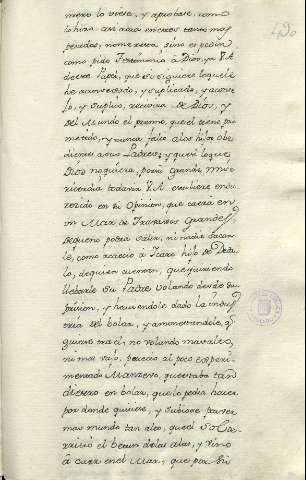 490
mero lo viese, y aprobase, como
lo hiran
perdidos, nome resta, sino es pedir
como pido Testimonio à Dios, ya V.A.
de esta Papel, que su siguiere loquele
he aconsejado, y suplicado, y aconse
lo, y suplio, recivira de Dios, y
del Mundo el premio, que el tiene pro
metido, y nunca faltó alos hijos obe
dientes asus Padres; y que si loque
Dios no quiera, por su grande mise
ricordia todavia V.A. estuviere endu
recido en su Opinion, que caerá en
un Mar de Trabajos Grandes,
dequeno podrá salir, ni nadie sacar
le, como acaeció a Icaro hijo de Deda
lo, dequien cuentan, que queriendo
llebarle su Padre volando desde su
prision, y haviendole dado la indus
tria del bolar, y amonestandole, q.
guiese tras el, no volando mas alto,
ni mas vajo, pareció al poco esperi
mentado Mancevo, que estaba tan
diestro en bolar, que lo podia hacer
por donde quisiese, y subiose para ver
mas mundo tan alto, que el Sol de
rritió el betun delas alas, y vino
à caer en el Mar, que por su